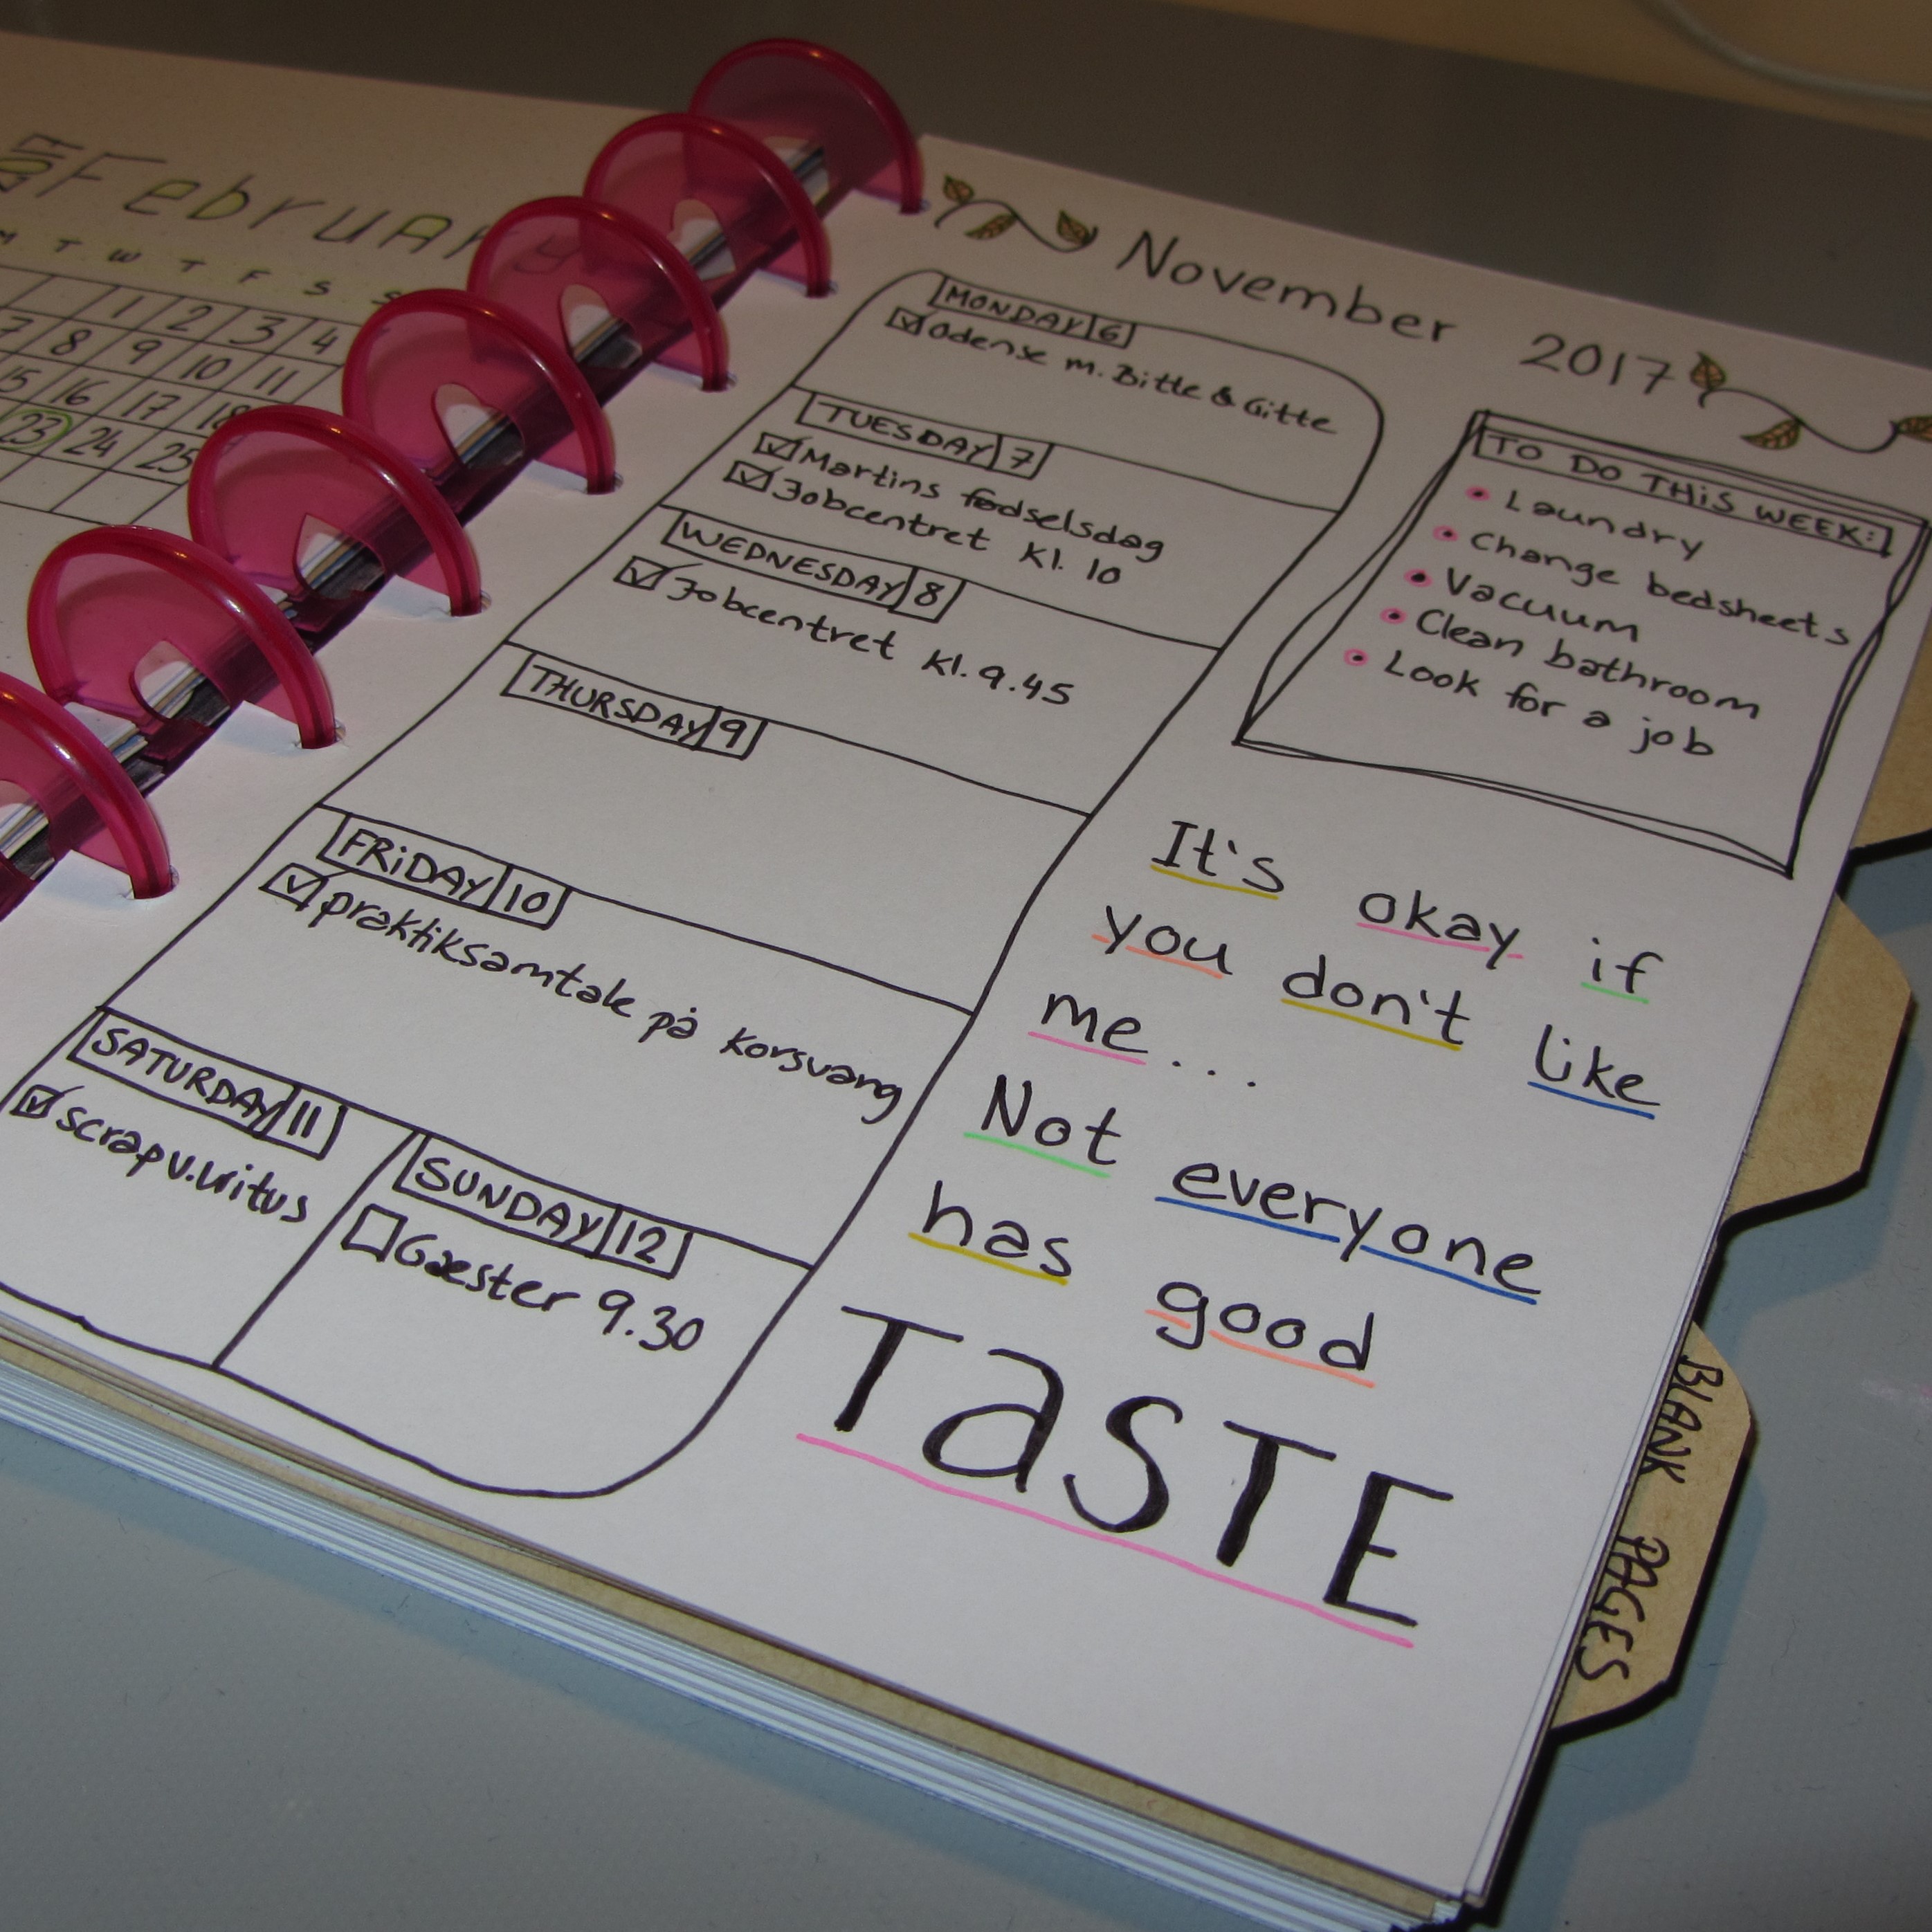 February
M T W T F S S
1 2 3 4
7 8 9 10 11
15 16 17 18
23 24 25
November 2017
MONDAY 6
Odense m. Bitte & Gitte
TUESDAY 7
Martins fødselsdag
Jobcentret Kl. 10
WEDNESDAY 8
Jobcentret Kl. 9.45
THURSDAY 9
FRiDAY 10
praktiksamtale på Korsvang
SATURDAY 11
scrap v. Britus
SUNDAY 12
Gæster 9.30
TO DO THiS WEEK:
Laundry
Change bedsheets
Vacuum
Clean bathroom
Look for a job
It's okay if
you don't like
me...
Not everyone
has good
TaSTE
BLANK PAGES